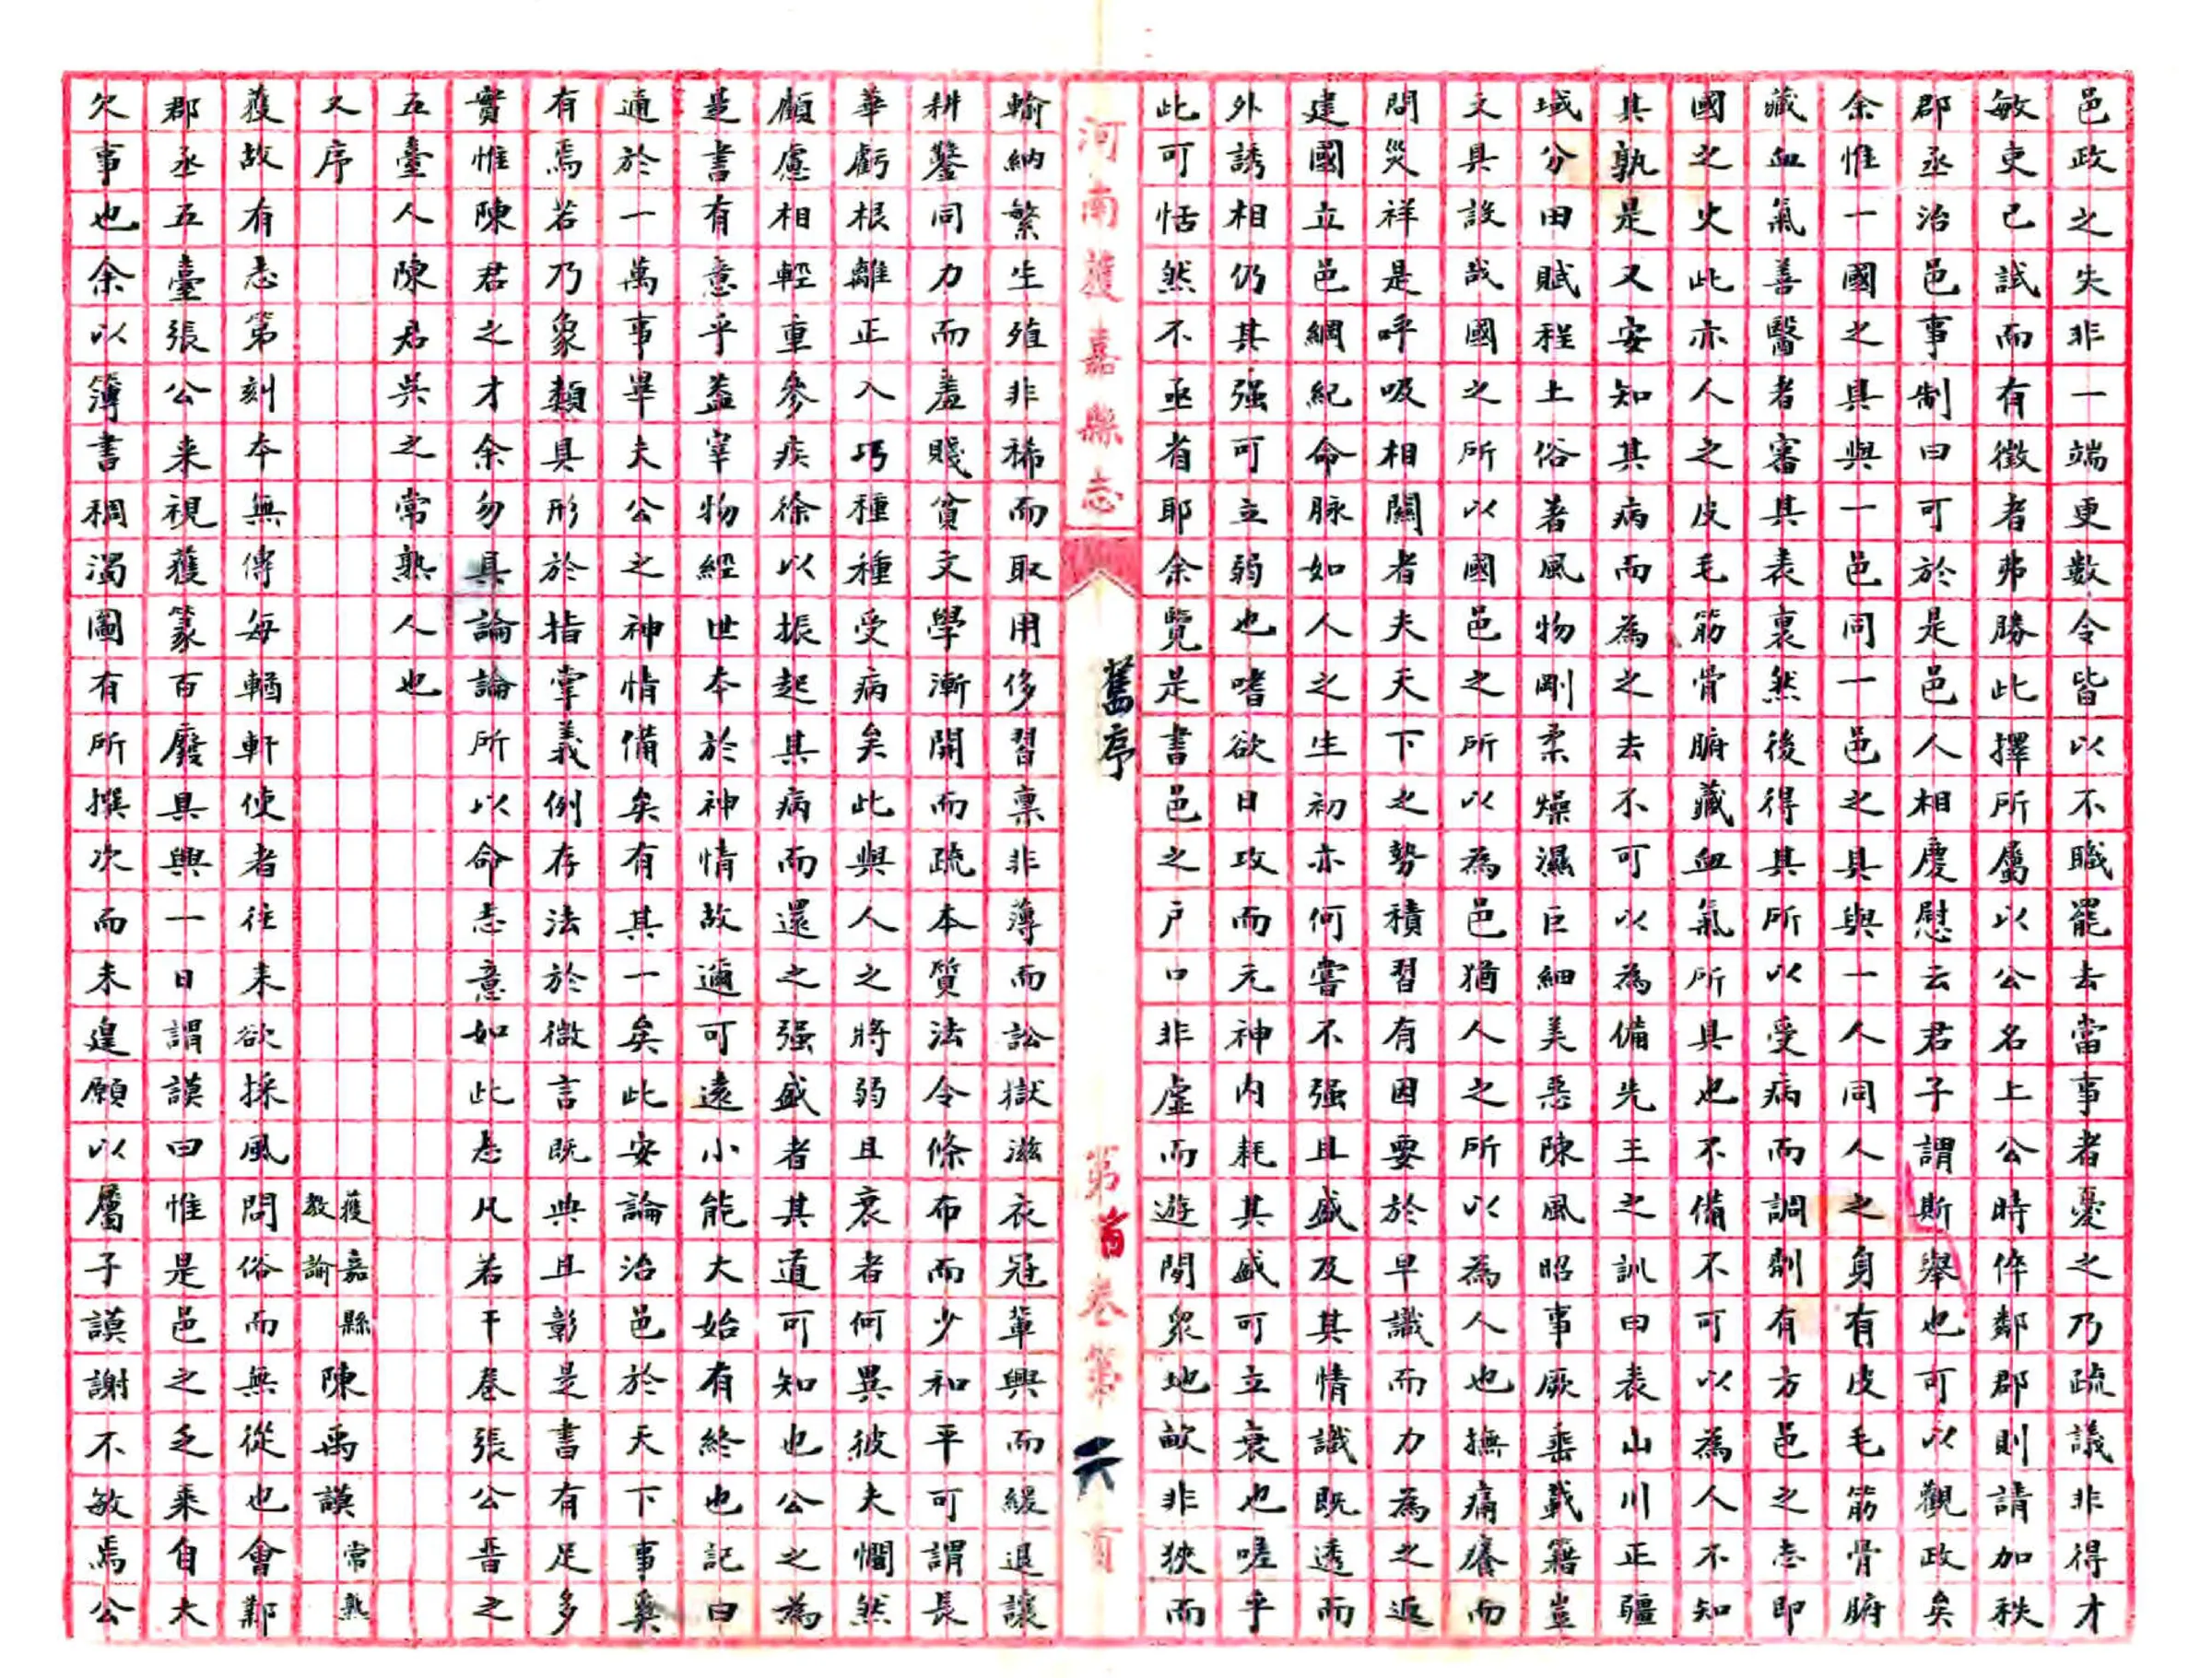 邑政之失非一端更數令皆以不職罷去當事者憂之乃疏議非得才
敏吏已試而有徵者弗勝此擇所屬以公名上公時倅鄰郡則請加秩
郡丞治邑事制曰可於是邑人相慶慰云君子謂斯舉也可以觀政矣
余惟一國之具與一邑同一邑之具與一人同人之身有皮毛筋骨腑
藏血氣善醫者審其表裏然後得其所以受病而調劑有方邑之志即
國之史此亦人之皮毛筋骨腑藏血氣所具也不備不可以為人不知
其孰是又安知其病而為之去不可以為備先王之訓曰表山川正疆
域分田賦程土俗著風物剛柔燥濕巨細美惡陳風昭事厥垂載籍豈
文具設哉國之所以國邑之所以為邑猶人之所以為人也撫痛癢而
問災祥是呼吸相關者夫天下之勢積習有因要於早識而力為之返
建國立邑綱紀命脉如人之生初亦何嘗不强且盛及其情識既透而
外誘相仍其强可立弱也嗜欲日攻而元神內耗其盛可立衰也嗟乎
此可恬然不亟省耶余覽是書邑之戶口非虛而遊閒衆地畝非狹而
河南獲嘉縣志
舊序
第首卷第六頁
輸納繁生殖非稀而取用侈習禀非薄而訟獄滋衣冠輩興而緩退讓
耕鑿同力而羞賤貧文學漸開而疏本質法令條布而少和平可謂長
華虧根離正入巧種種受病矣此與人之將弱且衰者何異彼夫憪然
顧慮相輕重參疾徐以振起其病而還之强盛者其道可知也公之為
是書有意乎蓋宰物經世本於神情故邇可遠小能大始有終也記曰
通於一萬事畢夫公之神情備矣有其一矣此安論治邑於天下事奚
有焉若乃象類具形於指掌義例存法於微言既典且彰是書有足多
實惟陳君之才余勿具論論所以命志意如此志凡若干卷張公晋之
五臺人陳君吳之常熟人也
又序 獲嘉縣教諭陳禹謨常熟
獲故有志第刻本無傳每輶軒使者往来欲採風問俗而無從也會鄴
郡丞五臺張公来視獲篆百廢具興一日謂謨曰惟是邑之乏乘自大
欠事也余以簿書稠濁圖有所撰次而未遑願以屬子謨謝不敏焉公